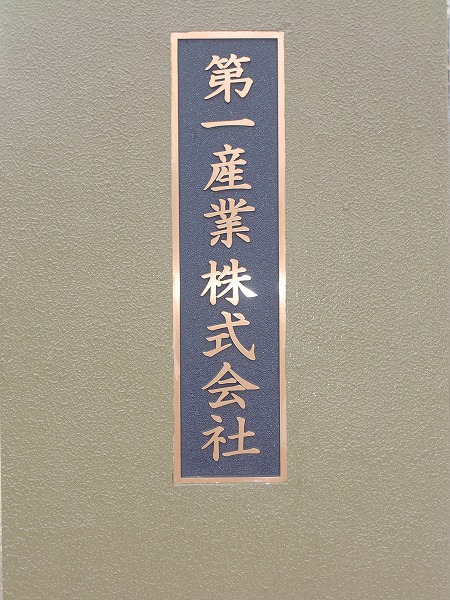 第一産業株式会社